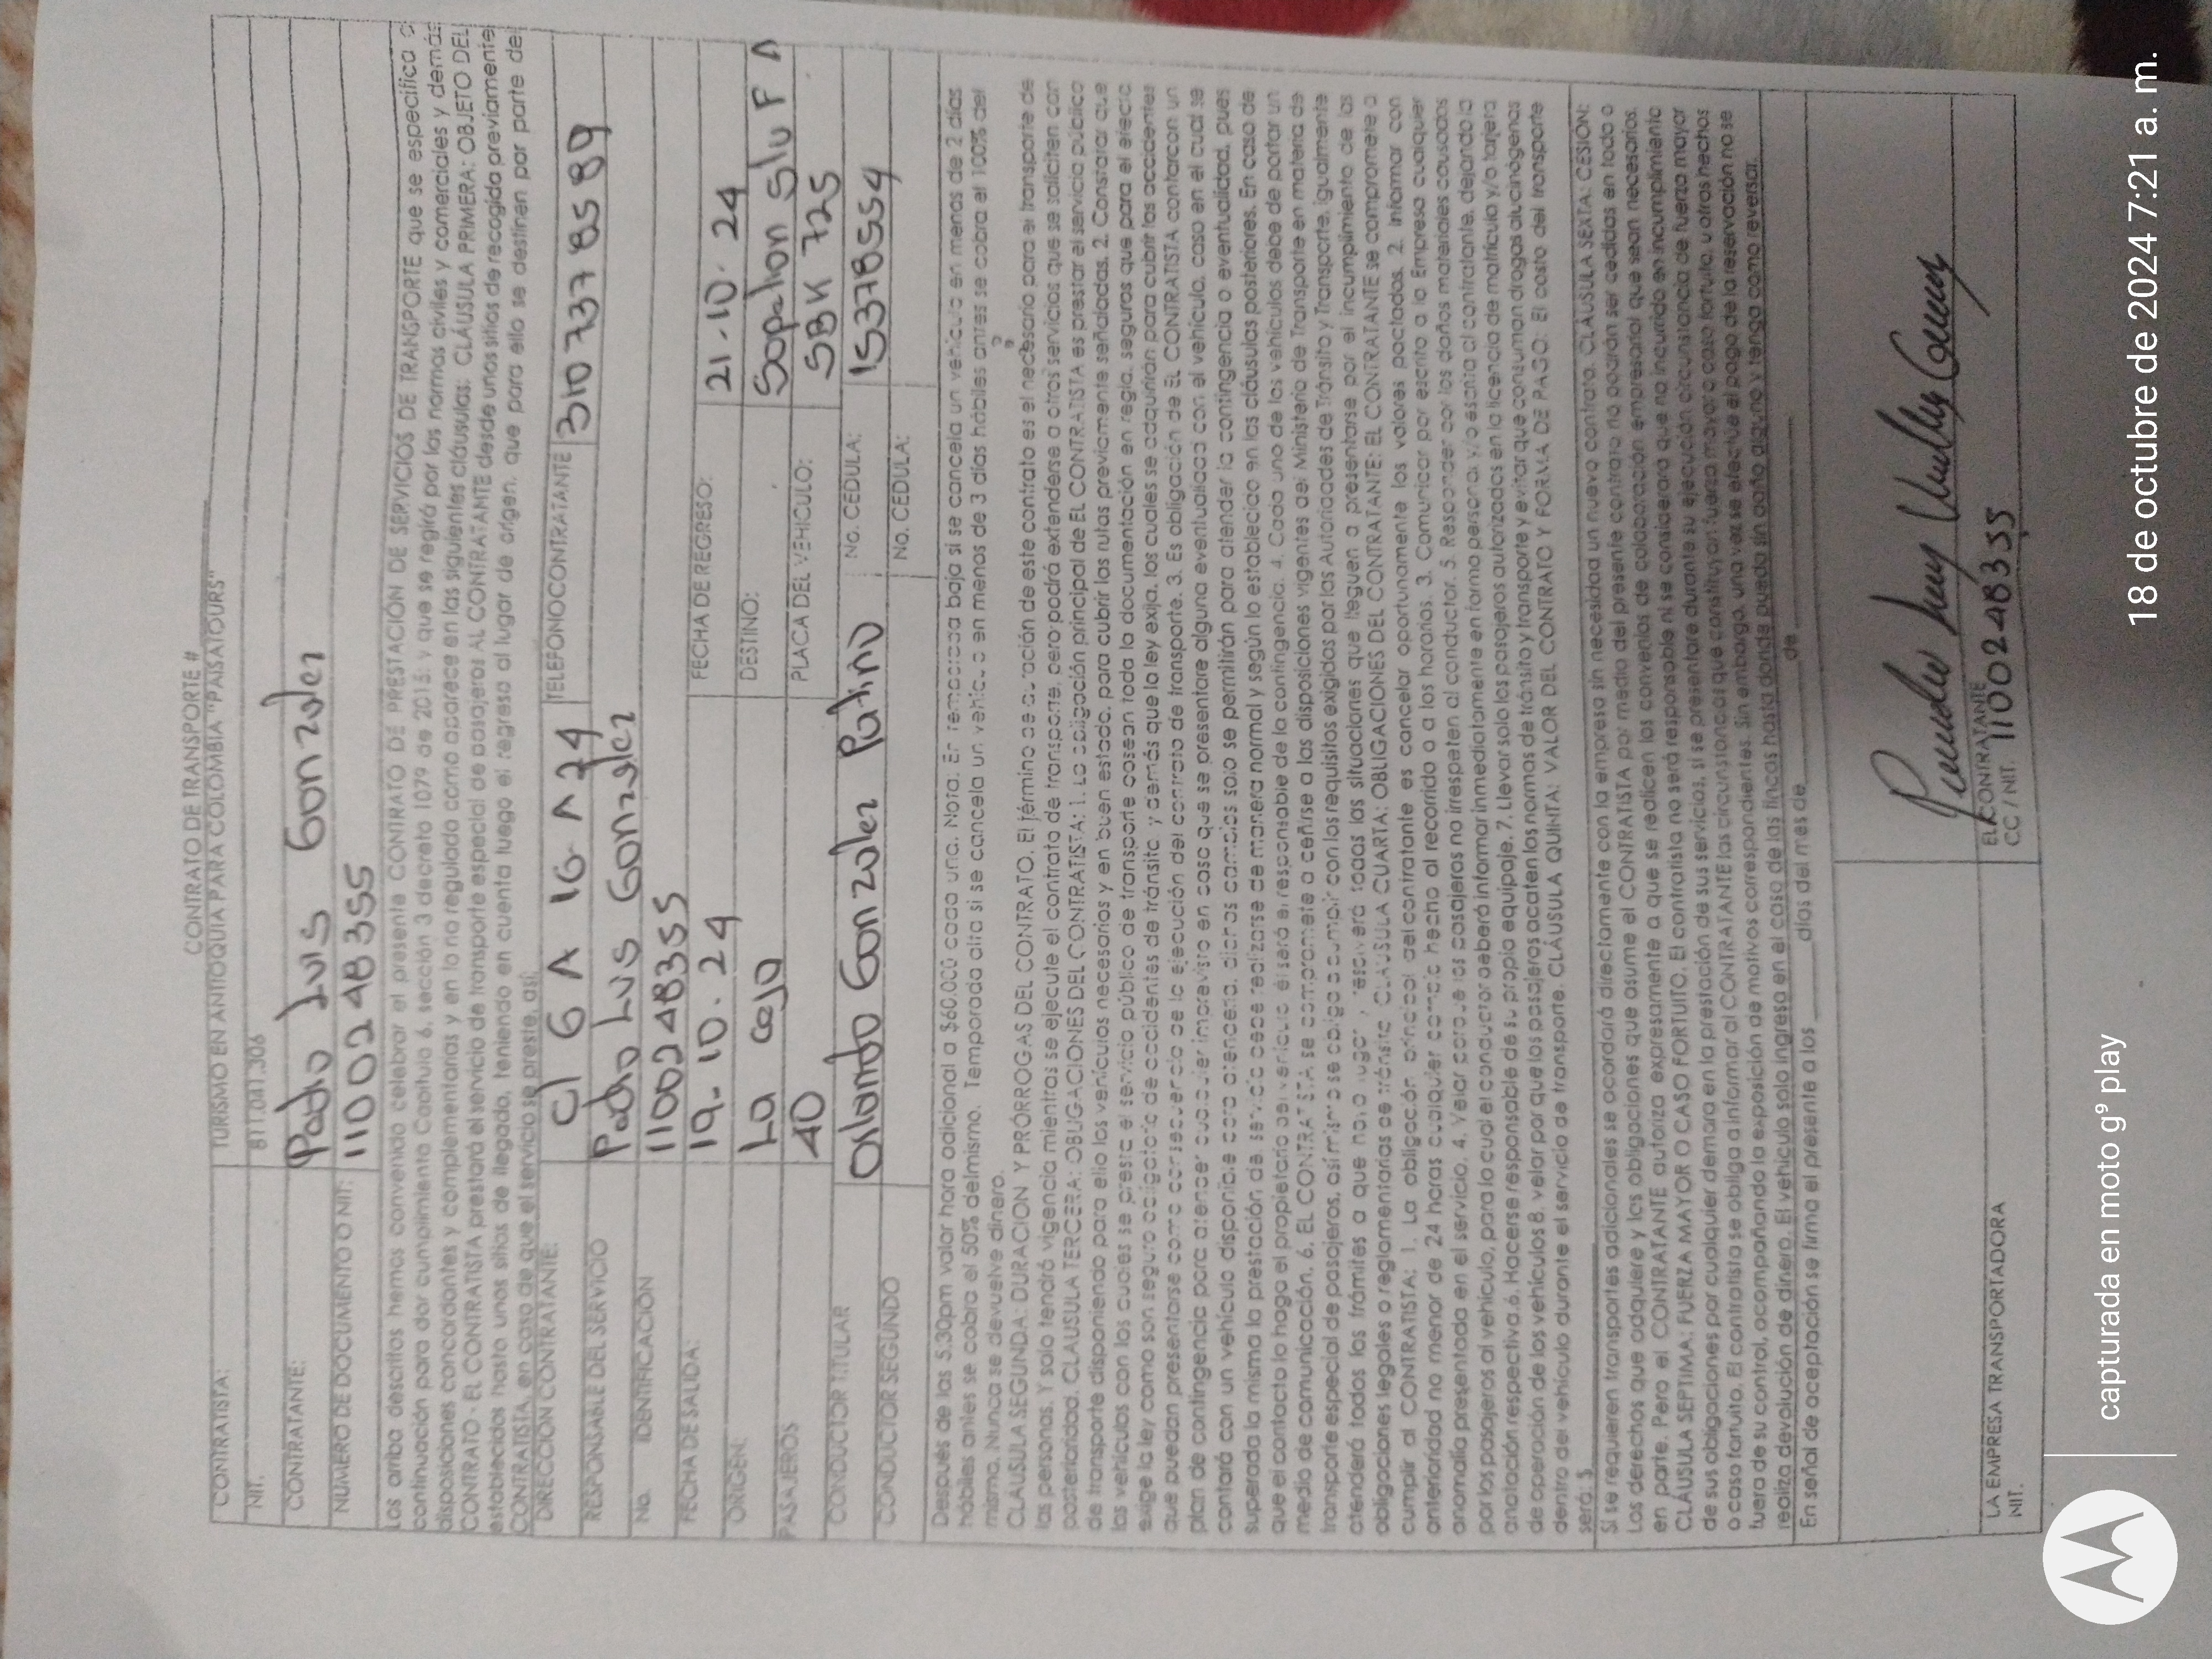 CONTRATO DE TRANSPORTE #
CONTRATISTA: TURISMO EN ANTIOQUIA PARA COLOMBIA "PAISATOURS"
NIT. 811.041.306
CONTRATANTE: Pablo Luis Gonzalez
NUMERO DE DOCUMENTO O NIT: 1100248355
Los arriba descritos hemos convenido celebrar el presente CONTRATO DE PRESTACIÓN DE SERVICIOS DE TRANSPORTE que se especifica a
continuación para dar cumplimiento Capitulo 6, sección 3 decreto 1079 de 2015; y que se regirá por las normas civiles y comerciales y demás
disposiciones concordantes y complementarias y en lo no regulado como aparece en las siguientes cláusulas: CLÁUSULA PRIMERA: OBJETO DEL
CONTRATO - EL CONTRATISTA prestará el servicio de transporte especial de pasajeros AL CONTRATANTE desde unos sitios de recogida previamente
establecidos hasta unos sitios de llegada, teniendo en cuenta luego el regreso al lugar de origen, que para ello se destinen por parte del
CONTRATISTA, en caso de que el servicio se preste, así:
DIRECCIÓN CONTRATANTE: Cl 6 A 16 A 24 TELEFONOCONTRATANTE 3107378589
RESPONSABLE DEL SERVICIO Pablo Luis Gonzalez
No. IDENTIFICACION 1100248355
FECHA DE SALIDA: 19.10.24 FECHA DE REGRESO: 21.10.24
ORIGEN: La ceja DESTINO:
PASAJEROS 40 PLACA DEL VEHICULO: SBK 725
CONDUCTOR TITULAR Orlando Gonzalez Patiño No. CEDULA: 15378554
CONDUCTOR SEGUNDO No. CEDULA:
Después de las 5.30pm valor hora adicional a $60.000 cada una. Nota: En temporada baja si se cancela un vehículo en menos de 2 días
hábiles antes se cobra el 50% del mismo. Temporada alta si se cancela un vehículo en menos de 3 días hábiles antes se cobra el 100% del
mismo. Nunca se devuelve dinero.
CLAUSULA SEGUNDA: DURACION Y PRÓRROGAS DEL CONTRATO. El término de duración de este contrato es el necesario para el transporte de
las personas. Y solo tendrá vigencia mientras se ejecute el contrato de transporte, pero podrá extenderse a otros servicios que se soliciten con
posterioridad. CLAUSULA TERCERA: OBLIGACIONES DEL CONTRATISTA: 1. La obligación principal de EL CONTRATISTA es prestar el servicio público
de transporte disponiendo para ello los vehículos necesarios y en buen estado, para cubrir las rutas previamente señaladas. 2. Constatar que
los vehículos con los cuales se presta el servicio público de transporte posean toda la documentación en regla, seguros que para el efecto
exige la ley como son seguro obligatorio de accidentes de tránsito y demás que la ley exija, los cuales se adquirirán para cubrir los accidentes
que puedan presentarse como consecuencia de la ejecución del contrato de transporte. 3. Es obligación de EL CONTRATISTA contar con un
plan de contingencia para atender cualquier imprevisto en caso que se presentare alguna eventualidad con el vehículo, caso en el cual se
contará con un vehículo disponible para atenderla, dichos cambios solo se permitirán para atender la contingencia o eventualidad, pues
superada la misma la prestación de servicio debe realizarse de manera normal y según lo establecido en las cláusulas posteriores. En caso de
que el contacto lo haga el propietario del vehículo él será el responsable de la contingencia. 4. Cada uno de los vehículos debe de portar un
medio de comunicación. 6. EL CONTRATISTA se compromete a ceñirse a las disposiciones vigentes del Ministerio de Transporte en materia de
transporte especial de pasajeros, así mismo se obliga a cumplir con los requisitos exigidos por las Autoridades de Tránsito y Transporte, igualmente
atenderá todos los trámites a que haya lugar y resolverá todas las situaciones que lleguen a presentarse por el incumplimiento de las
obligaciones legales o reglamentarias de tránsito. CLÁUSULA CUARTA: OBLIGACIONES DEL CONTRATANTE: EL CONTRATANTE se compromete a
cumplir al CONTRATISTA: 1. La obligación principal del contratante es cancelar oportunamente los valores pactados. 2. Informar con
anterioridad no menor de 24 horas cualquier cambio hecho al recorrido o a los horarios. 3. Comunicar por escrito a la Empresa cualquier
anomalía presentada en el servicio. 4. Velar porque los pasajeros no irrespeten al conductor. 5. Responder por los daños materiales causados
por los pasajeros al vehículo, para lo cual el conductor deberá informar inmediatamente en forma personal y/o escrita al contratante, dejando la
anotación respectiva. 6. Hacerse responsable de su propio equipaje. 7. Llevar solo los pasajeros autorizados en la licencia de matrícula y/o tarjeta
de operación de los vehículos 8. velar por que los pasajeros acaten las normas de tránsito y transporte y evitar que consuman drogas alucinógenas
dentro del vehículo durante el servicio de transporte. CLÁUSULA QUINTA: VALOR DEL CONTRATO Y FORMA DE PAGO: El costo del transporte
será: $
Si se requieren transportes adicionales se acordará directamente con la empresa sin necesidad un nuevo contrato. CLÁUSULA SEXTA: CESIÓN:
Los derechos que adquiere y las obligaciones que asume el CONTRATISTA por medio del presente contrato no podrán ser cedidas en todo o
en parte. Pero el CONTRATANTE autoriza expresamente a que se realicen los convenios de colaboración empresarial que sean necesarios.
CLÁUSULA SEPTIMA: FUERZA MAYOR O CASO FORTUITO. El contratista no será responsable ni se considerará que ha incurrido en incumplimiento
de sus obligaciones por cualquier demora en la prestación de sus servicios, si se presentare durante su ejecución circunstancia de fuerza mayor
o caso fortuito. El contratista se obliga a informar al CONTRATANTE las circunstancias que constituyan fuerza mayor o caso fortuito, u otros hechos
fuera de su control, acompañando la exposición de motivos correspondientes. Sin embargo, una vez se efectúe el pago de la reservación no se
realiza devolución de dinero. El vehículo solo ingresa en el caso de las fincas hasta donde pueda sin daño alguno y tenga como reversar.
En señal de aceptación se firma el presente a los ______ días del mes de ______ de ______
LA EMPRESA TRANSPORTADORA EL CONTRATANTE
NIT. CC / NIT. 1100248355
capturada en moto g⁹ play 18 de octubre de 2024 7:21 a. m.